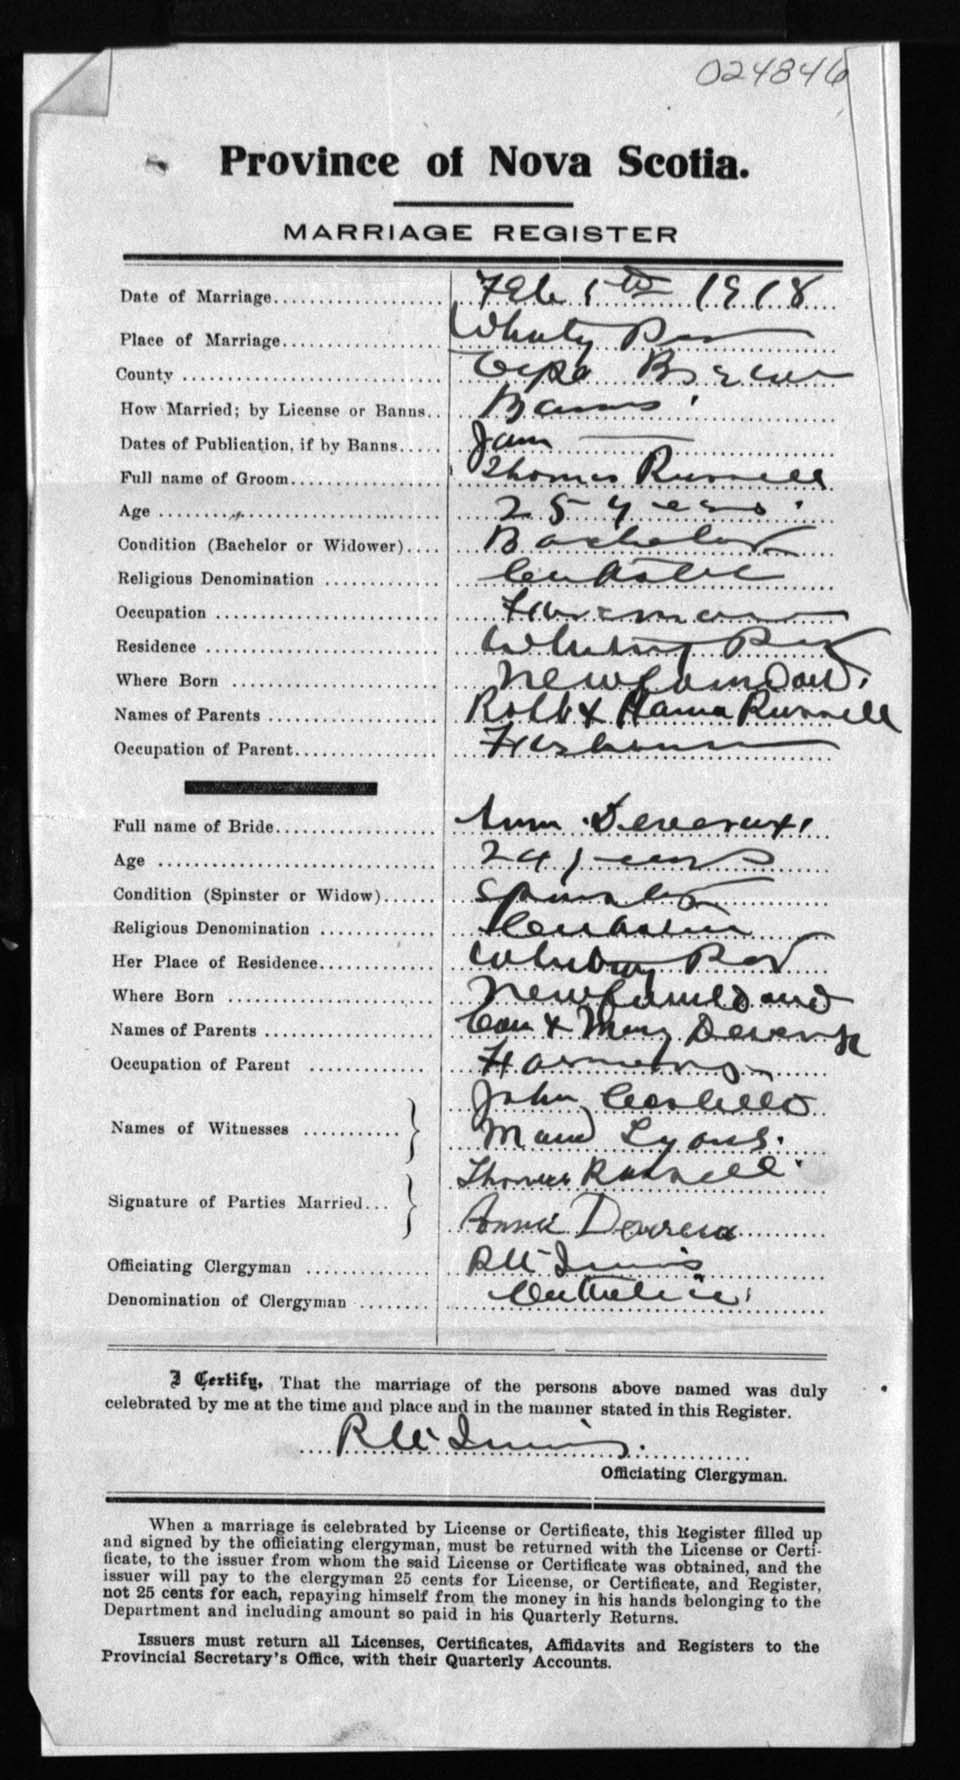 024846
Province of Nova Scotia.
MARRIAGE REGISTER
Date of Marriage Feb 5th 1918
Place of Marriage Whitney Pier
County Cape Breton
How Married; by License or Banns Banns
Dates of Publication, if by Banns Jan
Full name of Groom Thomas Russell
Age 25 years
Condition (Bachelor or Widower) Bachelor
Religious Denomination Catholic
Occupation
Residence Whitney Pier
Where Born Newfoundland
Names of Parents & Russell
Occupation of Parent Fisherman
Full name of Bride Ann Devereux
Age 24 years
Condition (Spinster or Widow) Spinster
Religious Denomination Catholic
Her Place of Residence Whitney Pier
Where Born Newfoundland
Names of Parents & Mary Devereux
Occupation of Parent
Names of Witnesses John Costello
Maud Lyons.
Signature of Parties Married Thomas Russell
Annie
Officiating Clergyman
Denomination of Clergyman Catholic
I Certify, That the marriage of the persons above named was duly
celebrated by me at the time and place and in the manner stated in this Register.
Officiating Clergyman.
When a marriage is celebrated by License or Certificate, this Register filled up
and signed by the officiating clergyman, must be returned with the License or Certi-
ficate, to the issuer from whom the said License or Certificate was obtained, and the
issuer will pay to the clergyman 25 cents for License, or Certificate, and Register,
not 25 cents for each, repaying himself from the money in his hands belonging to the
Department and including amount so paid in his Quarterly Returns.
Issuers must return all Licenses, Certificates, Affidavits and Registers to the
Provincial Secretary's Office, with their Quarterly Accounts.